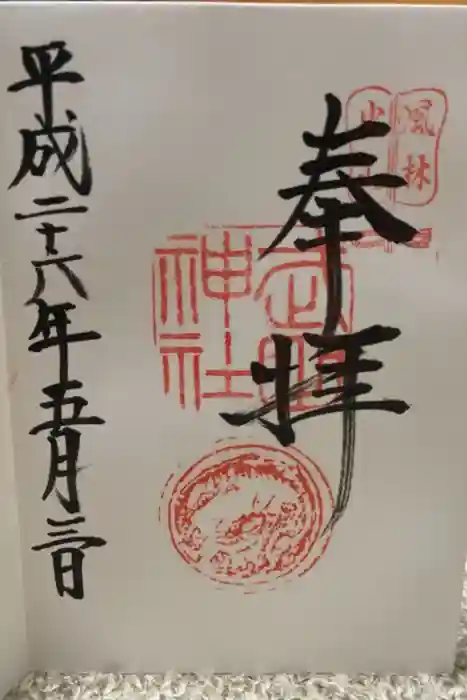 風林
奉拝
武田
神社
平成二十六年五月三日